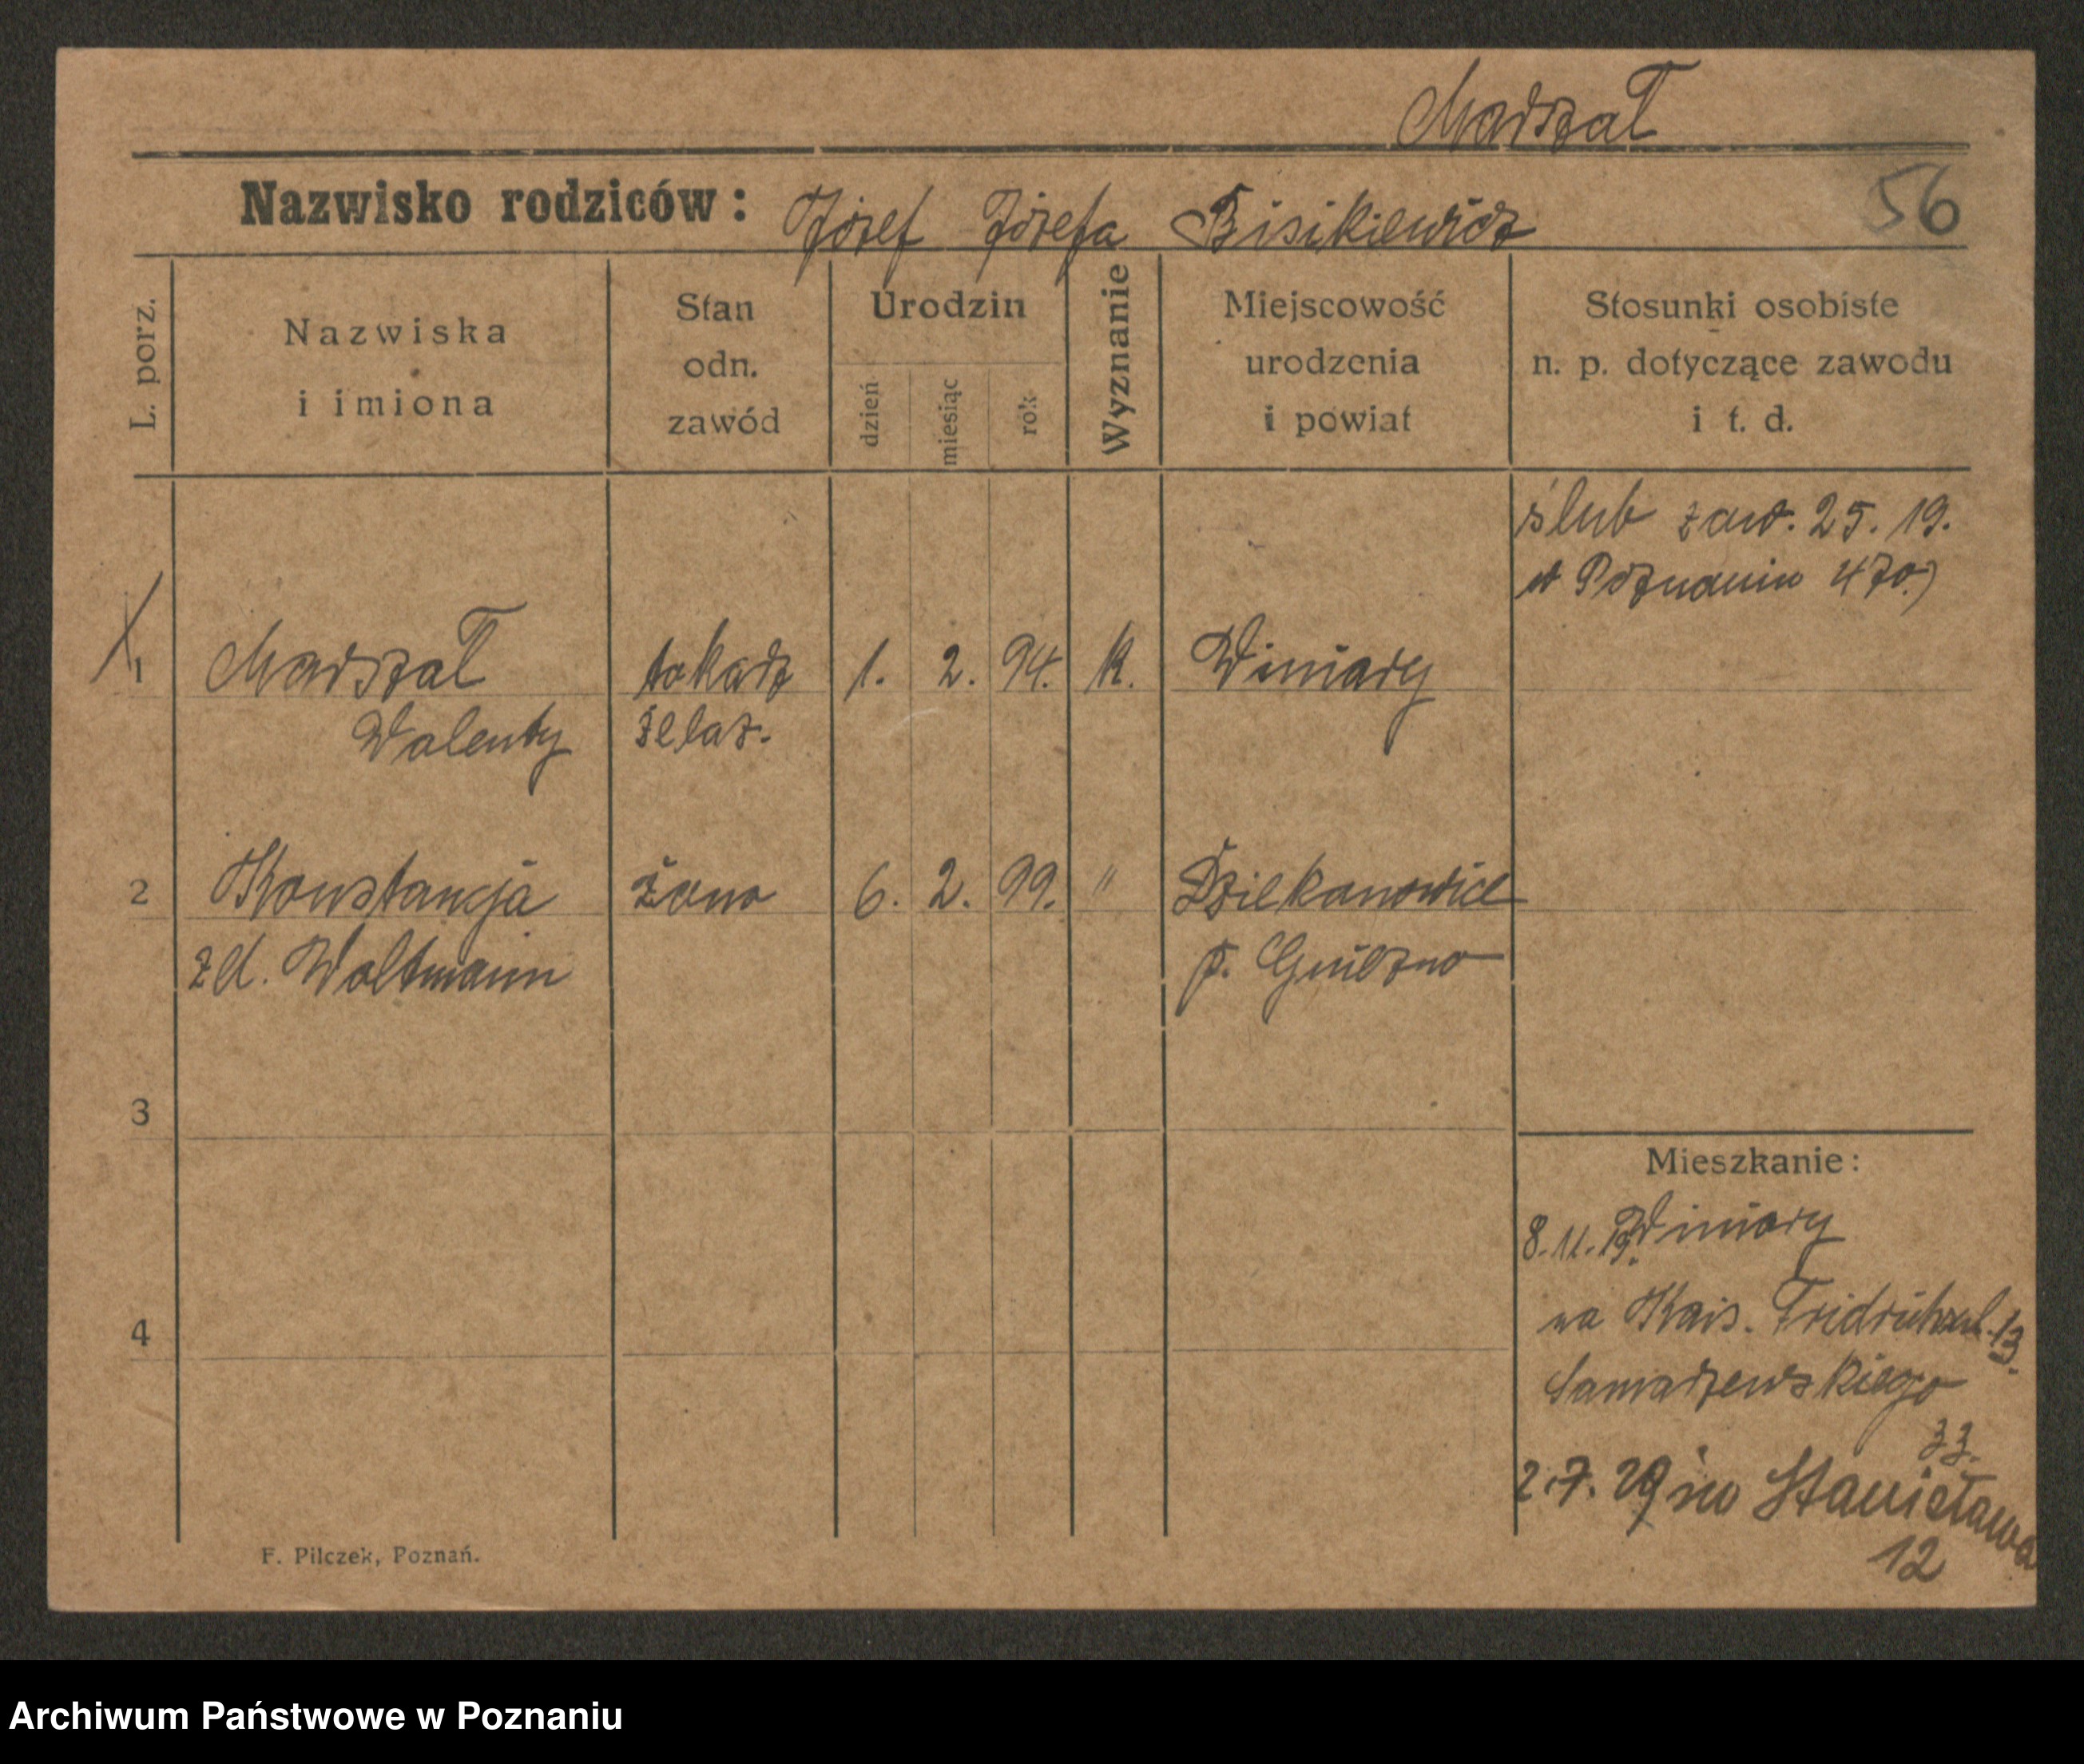 Marszał
Nazwisko rodziców: Józef Józefa Bisikiewicz
56
L. porz.
Nazwiska
i imiona
Stan
odn.
zawód
Urodzin
dzień
miesiąc
rok
Wyznanie
Miejscowość
urodzenia
i powiat
Stosunki osobiste
n. p. dotyczące zawodu
i t. d.
ślub zaw. 25. 19.
w Poznaniu 470)
1 Marszał tokarz 1. 2. 94. k. Winiary
Walenty żelaz.
2 Konstancja żona 6. 2. 99. " Dziekanowice
zd. Woltmann p. Gniezno
3
Mieszkanie:
8. 11. 19. Winiary
na Kais. Fridrichstr. 13.
4
Samarzewskiego
33.
2. 7. 29 Stanisława
12
F. Pilczek, Poznań.
Archiwum Państwowe w Poznaniu